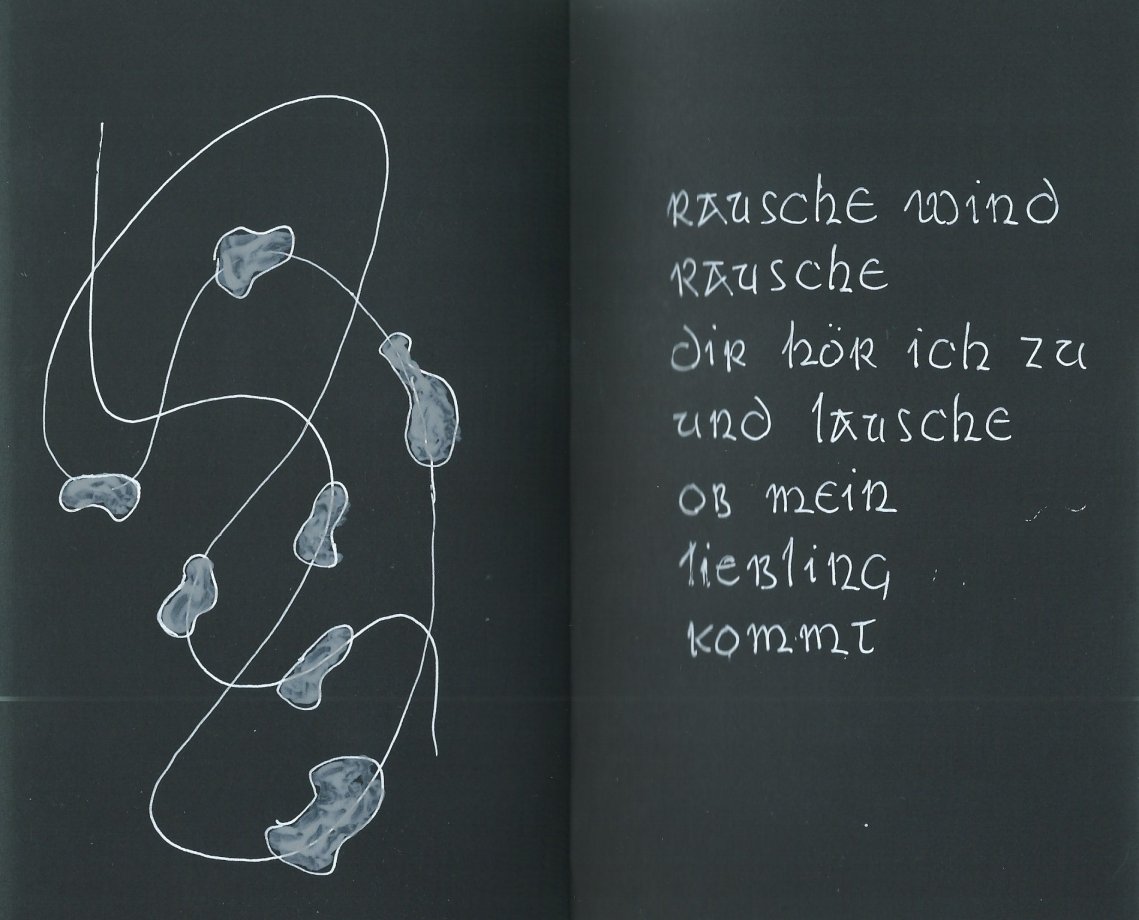 rausche wind
rausche
dir hör ich zu
und lausche
ob mein
liebling
kommt